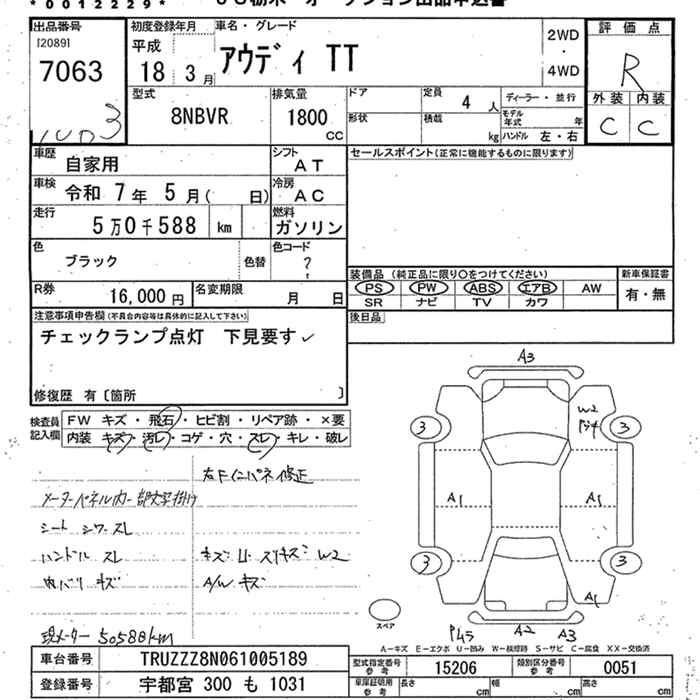 *0012229*
出品番号
[2089]
7063
初度登録年月
平成
18 3月
車名・グレード
アウディ TT
2WD
・
4WD
評価点
R
外装 内装
C C
型式
8NBVR
排気量
1800
CC
ドア
形状
定員
4 人
積載
kg
ディーラー・並行
モデル年式 年
ハンドル 左・右
車歴
自家用
シフト
AT
セールスポイント(正常に機能するものに限ります)
車検
令和 7年 5月( 日)
冷房
AC
走行
5万0千588 km
燃料
ガソリン
色
ブラック
色替
色コード
?
R券
16,000円
名変期限
月 日
装備品 (純正品に限り○をつけてください)
PS PW ABS エアB AW
SR ナビ TV カワ
新車保証書
有・無
後日品
注意事項申告欄(不具合内容等は具体的に記入して下さい)
チェックランプ点灯 下見要す
修復歴 有〔箇所 〕
検査員記入欄
FW キズ・飛石・ヒビ割・リペア跡・×要
内装 キズ・汚レ・コゲ・穴・スレ・キレ・破レ
右Fインパネ修正
シート シワ スレ
ハンドル スレ
内バリ キズ
A/W キズ
W2
現メーター 50588km
A3
W2
3
3
A1
A1
3
3
A1
スペア
A2
A3
A-キズ E-エクボ U-凹み W-補修跡 S-サビ C-腐食 XX-交換済
車台番号
TRUZZZ8N061005189
登録番号
宇都宮 300 も 1031
型式指定番号
参考
15206
類別区分番号
参考
0051
車庫証明用
参考
長さ cm
幅 cm
高さ cm